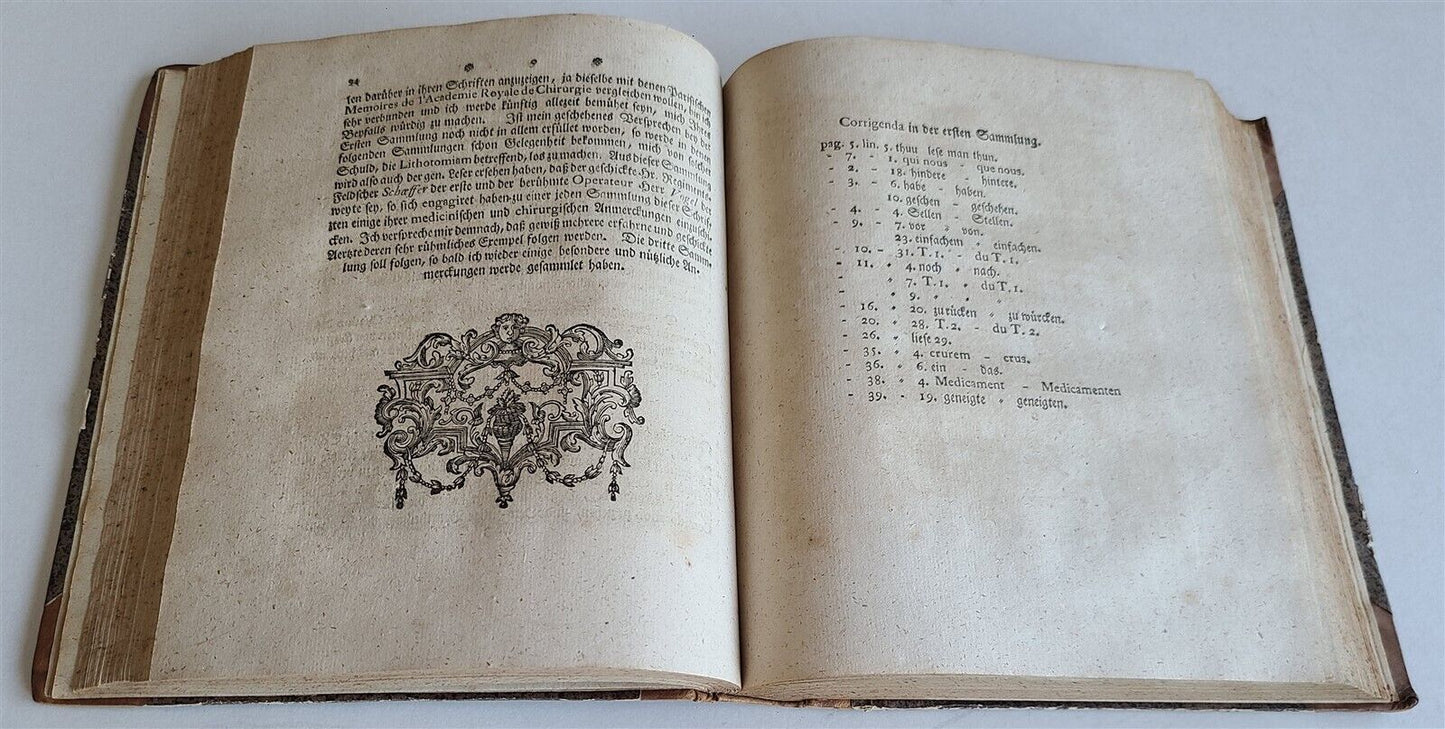 24
ten darüber in ihren Schriften anzuzeigen, ja dieselbe mit denen Parisischen
Memoires de l'Academie Royale de Chirurgie vergleichen wollen, bin ich
sehr verbunden und ich werde künftig allezeit bemühet seyn, mich Ihres
Beyfalls würdig zu machen. Ist mein geschehenes Versprechen bey der
Ersten Sammlung noch nicht in allem erfüllet worden, so werde in denen
folgenden Sammlungen schon Gelegenheit bekommen, mich von solcher
Schuld, die Lithotomiam betreffend, los zu machen. Aus dieser Sammlung
wird also auch der gen. Leser ersehen haben, daß der geschickte Hr. Regiments-
Feldscher Schæffer der erste und der berühmte Operateur Herr Vogel der
zweyte sey, so sich engagiret haben zu einer jeden Sammlung dieser Schrif-
ten einige ihrer medicinischen und chirurgischen Anmerckungen einzuschi-
cken. Ich verspreche mir demnach, daß gewiß mehrere erfahrne und geschickte
Aerzte deren sehr rühmliches Exempel folgen werden. Die dritte Samm-
lung soll folgen, so bald ich wieder einige besondere und nützliche An-
merckungen werde gesammlet haben.
Corrigenda in der ersten Sammlung.
pag. 5. lin. 5. thuu lese man thun.
- 7. - 1. qui nous - que nous.
- 2. - 18. hindere - hintere.
- 3. - 6. habe - haben.
10. geschen - geschehen.
- 4. - 4. Sellen - Stellen.
- 9. - 7. vor - von.
23. einfachem - einfachen.
- 10. - 31. T. 1. - du T. 1.
- 11. - 4. noch - nach.
- 7. T. 1. - du T. 1.
- 9. - - -
- 16. - 20. zu rücken - zu würcken.
- 20. - 28. T. 2. - du T. 2.
- 26. - liese 29.
- 35. - 4. crurem - crus.
- 36. - 6. ein - das.
- 38. - 4. Medicament - Medicamenten
- 39. - 19. geneigte - geneigten.